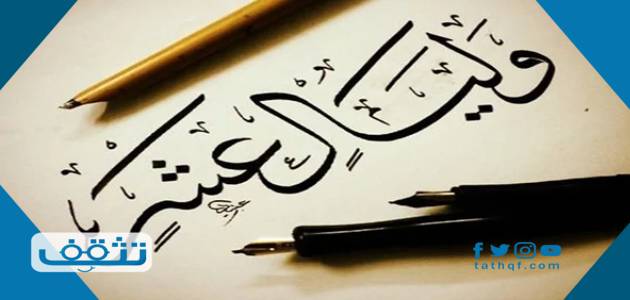 وليالٍ عشرٍ
تثقف
tathqf.com